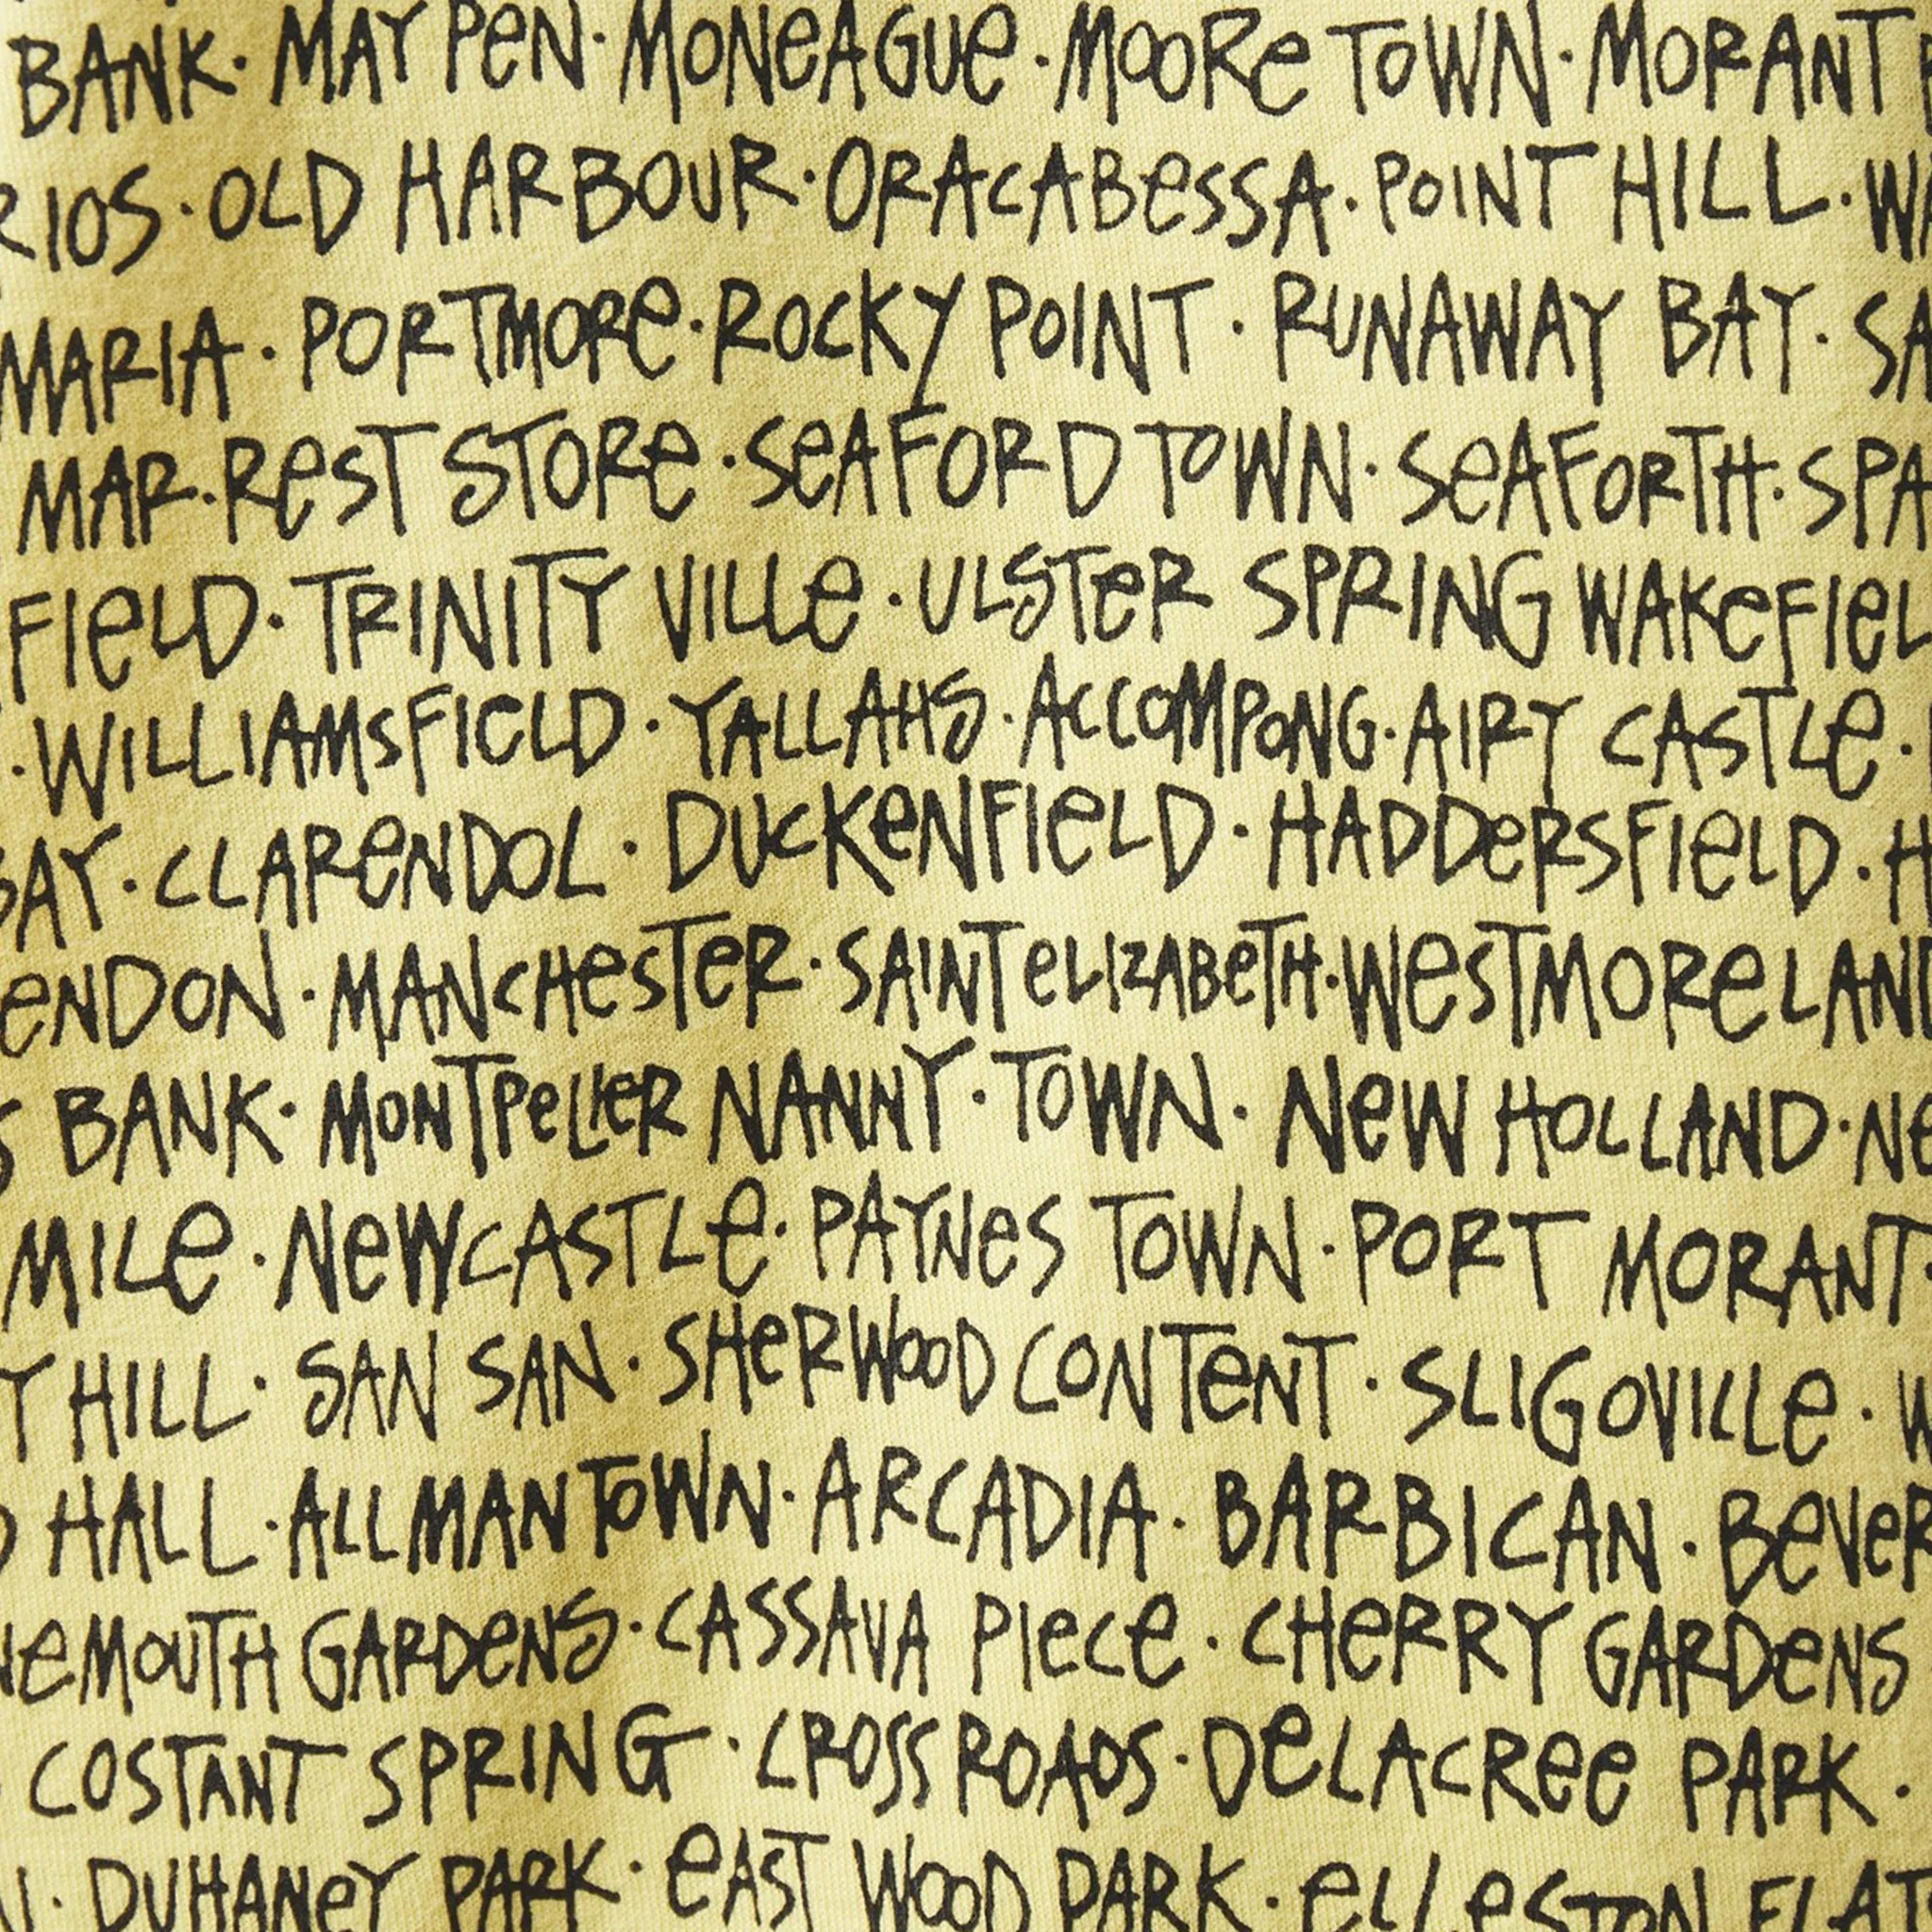 BANK · MAY PEN · MONEAGUE · MOORE TOWN · MORANT
RIOS · OLD HARBOUR · ORACABESSA · POINT HILL · WA
MARIA · PORTMORE · ROCKY POINT · RUNAWAY BAY · SA
MAR · REST STORE · SEAFORD TOWN · SEAFORTH · SPA
FIELD · TRINITY VILLE · ULSTER SPRING WAKEFIEL
· WILLIAMSFIELD · YALLAHS · ACCOMPONG · AIRY CASTLE ·
BAY · CLARENDOL · DUCKENFIELD · HADDERSFIELD · H
ENDON · MANCHESTER · SAINT ELIZABETH · WESTMORELAND
S BANK · MONTPELIER NANNY · TOWN · NEW HOLLAND · NE
MILE · NEWCASTLE · PAYNES TOWN · PORT MORANT ·
Y HILL · SAN SAN · SHERWOOD CONTENT · SLIGOVILLE · W
D HALL · ALLMAN TOWN · ARCADIA · BARBICAN · BEVER
NEMOUTH GARDENS · CASSAVA PIECE · CHERRY GARDENS
COSTANT SPRING · CROSS ROADS · DELACREE PARK ·
· DUHANEY PARK · EAST WOOD PARK · ELLESTON FLAT